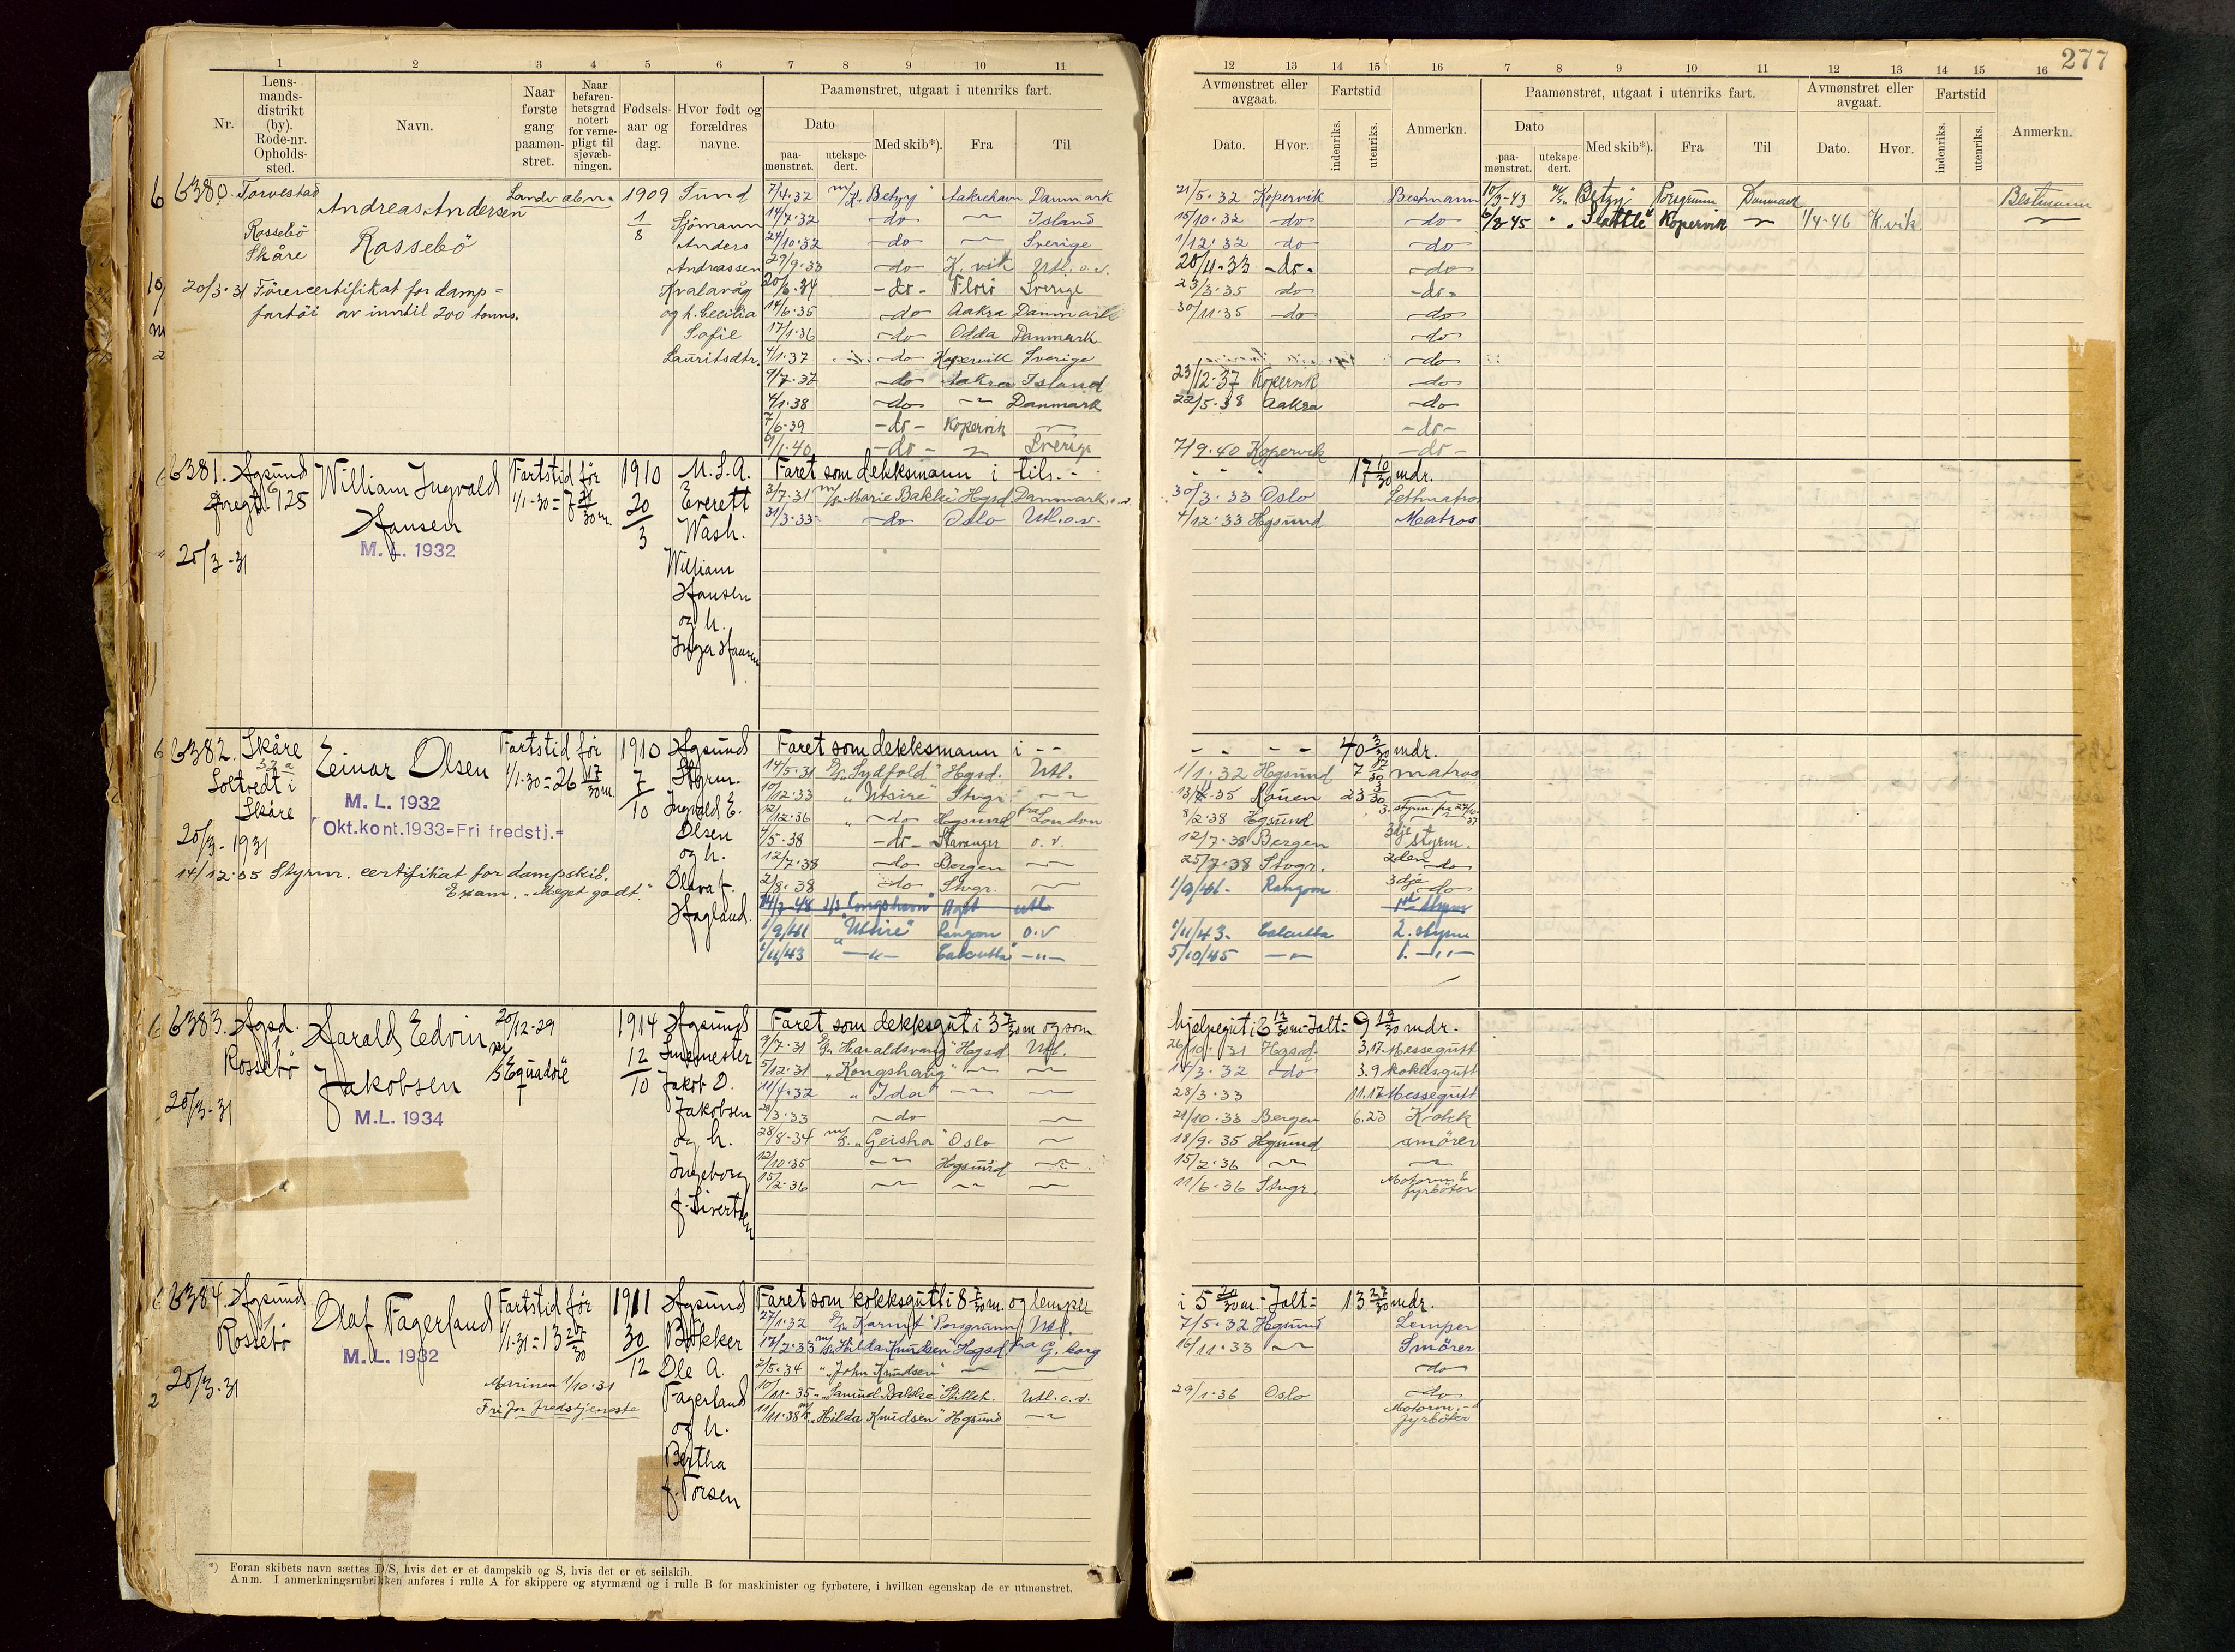 277
1 2 3 4 5 6 7 8 9 10 11
12 13 14 15 16 7 8 9 10 11 12 13 14 15 16
Nr.
Lens-
mands-
distrikt
(by).
Rode-nr.
Opholds-
sted.
Navn.
Naar
første
gang
paamøn-
stret.
Naar
befaren-
hetsgrad
notert
for verne-
pligt til
sjøvæb-
ningen.
Fødsels-
aar og
dag.
Hvor født og
forældres
navne.
Paamønstret, utgaat i utenriks fart.
Dato
paa-
mønstret.
utekspe-
dert.
Med skib*).
Fra
Til
Avmønstret eller
avgaat.
Dato.
Hvor.
Fartstid
indenriks.
utenriks.
Anmerkn.
Paamønstret, utgaat i utenriks fart.
Dato
paa-
mønstret.
utekspe-
dert.
Med skib*).
Fra
Til
Avmønstret eller
avgaat.
Dato.
Hvor.
Fartstid
indenriks.
utenriks.
Anmerkn.
6380. Torvestad
Rossebö
Skåre
Andreas Andersen
Rossebö
20/3-31 Förercertifikat for damp-
fartöi av inntil 200 tonns.
1909
1
8
Sund
Sjömann
Anders
Andreassen
Kvalavåg
og h. Cecilia
Sofie
Lauritsdtr.
7/4-32 Betzy Aakrehavn Danmark 21/5-32 Kopervik Bestmann
14/7-32 do Island 15/10-32 do do
24/10-32 do Sverige 1/12-32 do do
29/9-33 do K.vik Utl. o.v. 20/11-33 do do
20/6-34 do Florö Sverige 23/3-35 do do
14/6-35 do Aakra Danmark 30/11-35 do do
17/1-36 do Odda Danmark do
4/1-37 do Kopervik Sverige do
9/7-37 do Aakra Island 23/12-37 Kopervik do
4/1-38 do Danmark 22/5-38 Aakra do
7/6-39 do Kopervik do
9/1-40 do Sverige 7/9-40 Kopervik do
10/3-43 Betzy Porsgrunn Danmark Bestmann
Kopervik 1/4-46 K.vik
6381. Hgsund
125
20/3-31
William Ingvald
Hansen
M. L. 1932
Fartstid før
1/1-30 = 7 21/30 m.
1910
20
3
U.S.A.
Everett
Wash.
William
Hansen
og h.
Inga Hansen
Faret som dekksmann i tils. 17 10/30 mdr.
3/7-31 Marie Bakke Hgsd Danmark o.v. 30/3-33 Oslo Lettmatros
31/3-33 do Oslo Utl. o.v. 4/12-33 Hgsund Matros
6382. Skåre
Soltvedt i
Skåre
20/3-1931
Einar Olsen
M. L. 1932
Okt.kont.1933=Fri fredstj.=
14/12-35 Styrm. certifikat for dampskib.
Exam. "Meget godt".
Fartstid før
1/1-30 = 26 17/30 m.
1910
7
10
Hgsund
Styrm.
Ingvald E.
Olsen
og h.
Olava f.
Hagland.
Faret som dekksmann i 40 3/30 mdr.
14/5-31 "Sydfold" Hgsd. Utl. 1/1-32 Hgsund 7 17/30 matros
10/12-33 "Utsire" Stvgr Rouen 23 3/30
12/12-36 do Hgsund fra London 8/2-38 Hgsund 3. styrm. fra
4/5-38 do Stavanger o.v. 12/7-38 Bergen 3dje styrm.
12/7-38 do Bergen 25/7-38 Stvgr. 2den do
2/8-38 do Stvgr. 1/9/41 Rangoon 3dje do
1/9/41 "Utsire" Rangoon o.v 1/11/43 Calcutta 2. styrm
1/11/43 Calcutta 5/10/45 1.
6383. Hgsd.
Rossebö
20/3-31
Harald Edvin
Jakobsen
M.L. 1934
20/12-29
1914
12
10
Hgsund
Jakob O.
Jakobsen
og h.
Ingeborg
f. Sivertsen
Faret som dekksgut i 3 7/30 m og som hjelpegut i 6 12/30 m = Ialt = 9 19/30 mdr.
9/7-31 Haraldsvang Hgsd Utl. 26/10-31 Hgsd. 3,17 Messegutt
5/12-31 "Kongshaug" do 3.9 kokksgutt
11/4-32 "Ida" 28/3-33 11.17 Messegutt
28/3-33 do 21/10-33 Bergen 6.23 Kokk
28/8-34 "Geisha" Oslo 18/9-35 Hgsund smörer
12/10-35 Hgsund 15/2-36
15/2-36 11/6-36 Stvgr. Motorm. &
fyrböter
6384. Hgsund
Rossebö
20/3-31
Olaf Fagerland
M. L. 1932
Marinen 1/10-31
Fri for fredstjeneste
Fartstid før
1/1-31 = 13 27/30
1911
30
12
Hgsund
Bökker
Ole A.
Fagerland
og h.
Bertha
f. Torsen
Faret som kokksgutt i 8 7/30 m. og lemper i 5 20/30 m. = Ialt = 13 27/30 mdr.
27/1-32 Karmt Porsgrunn Utl. 7/5-32 Hgsund Lemper
17/2-33 "Hilda Knudsen" Hgsd fra G.borg 16/11-33 Smörer
2/5-34 "John Knudsen" do
10/11-35 "Samuel Bakke" Utl. o.v. 29/1-36 Oslo do
11/11-38 "Hilda Knudsen" Hgsund Motorm.
fyrböter
*) Foran skibets navn sættes D/S, hvis det er et dampskib og S, hvis det er et seilskib.
Anm. I anmerkningsrubrikken anføres i rulle A for skippere og styrmænd og i rulle B for maskinister og fyrbøtere, i hvilken egenskap de er utmønstret.